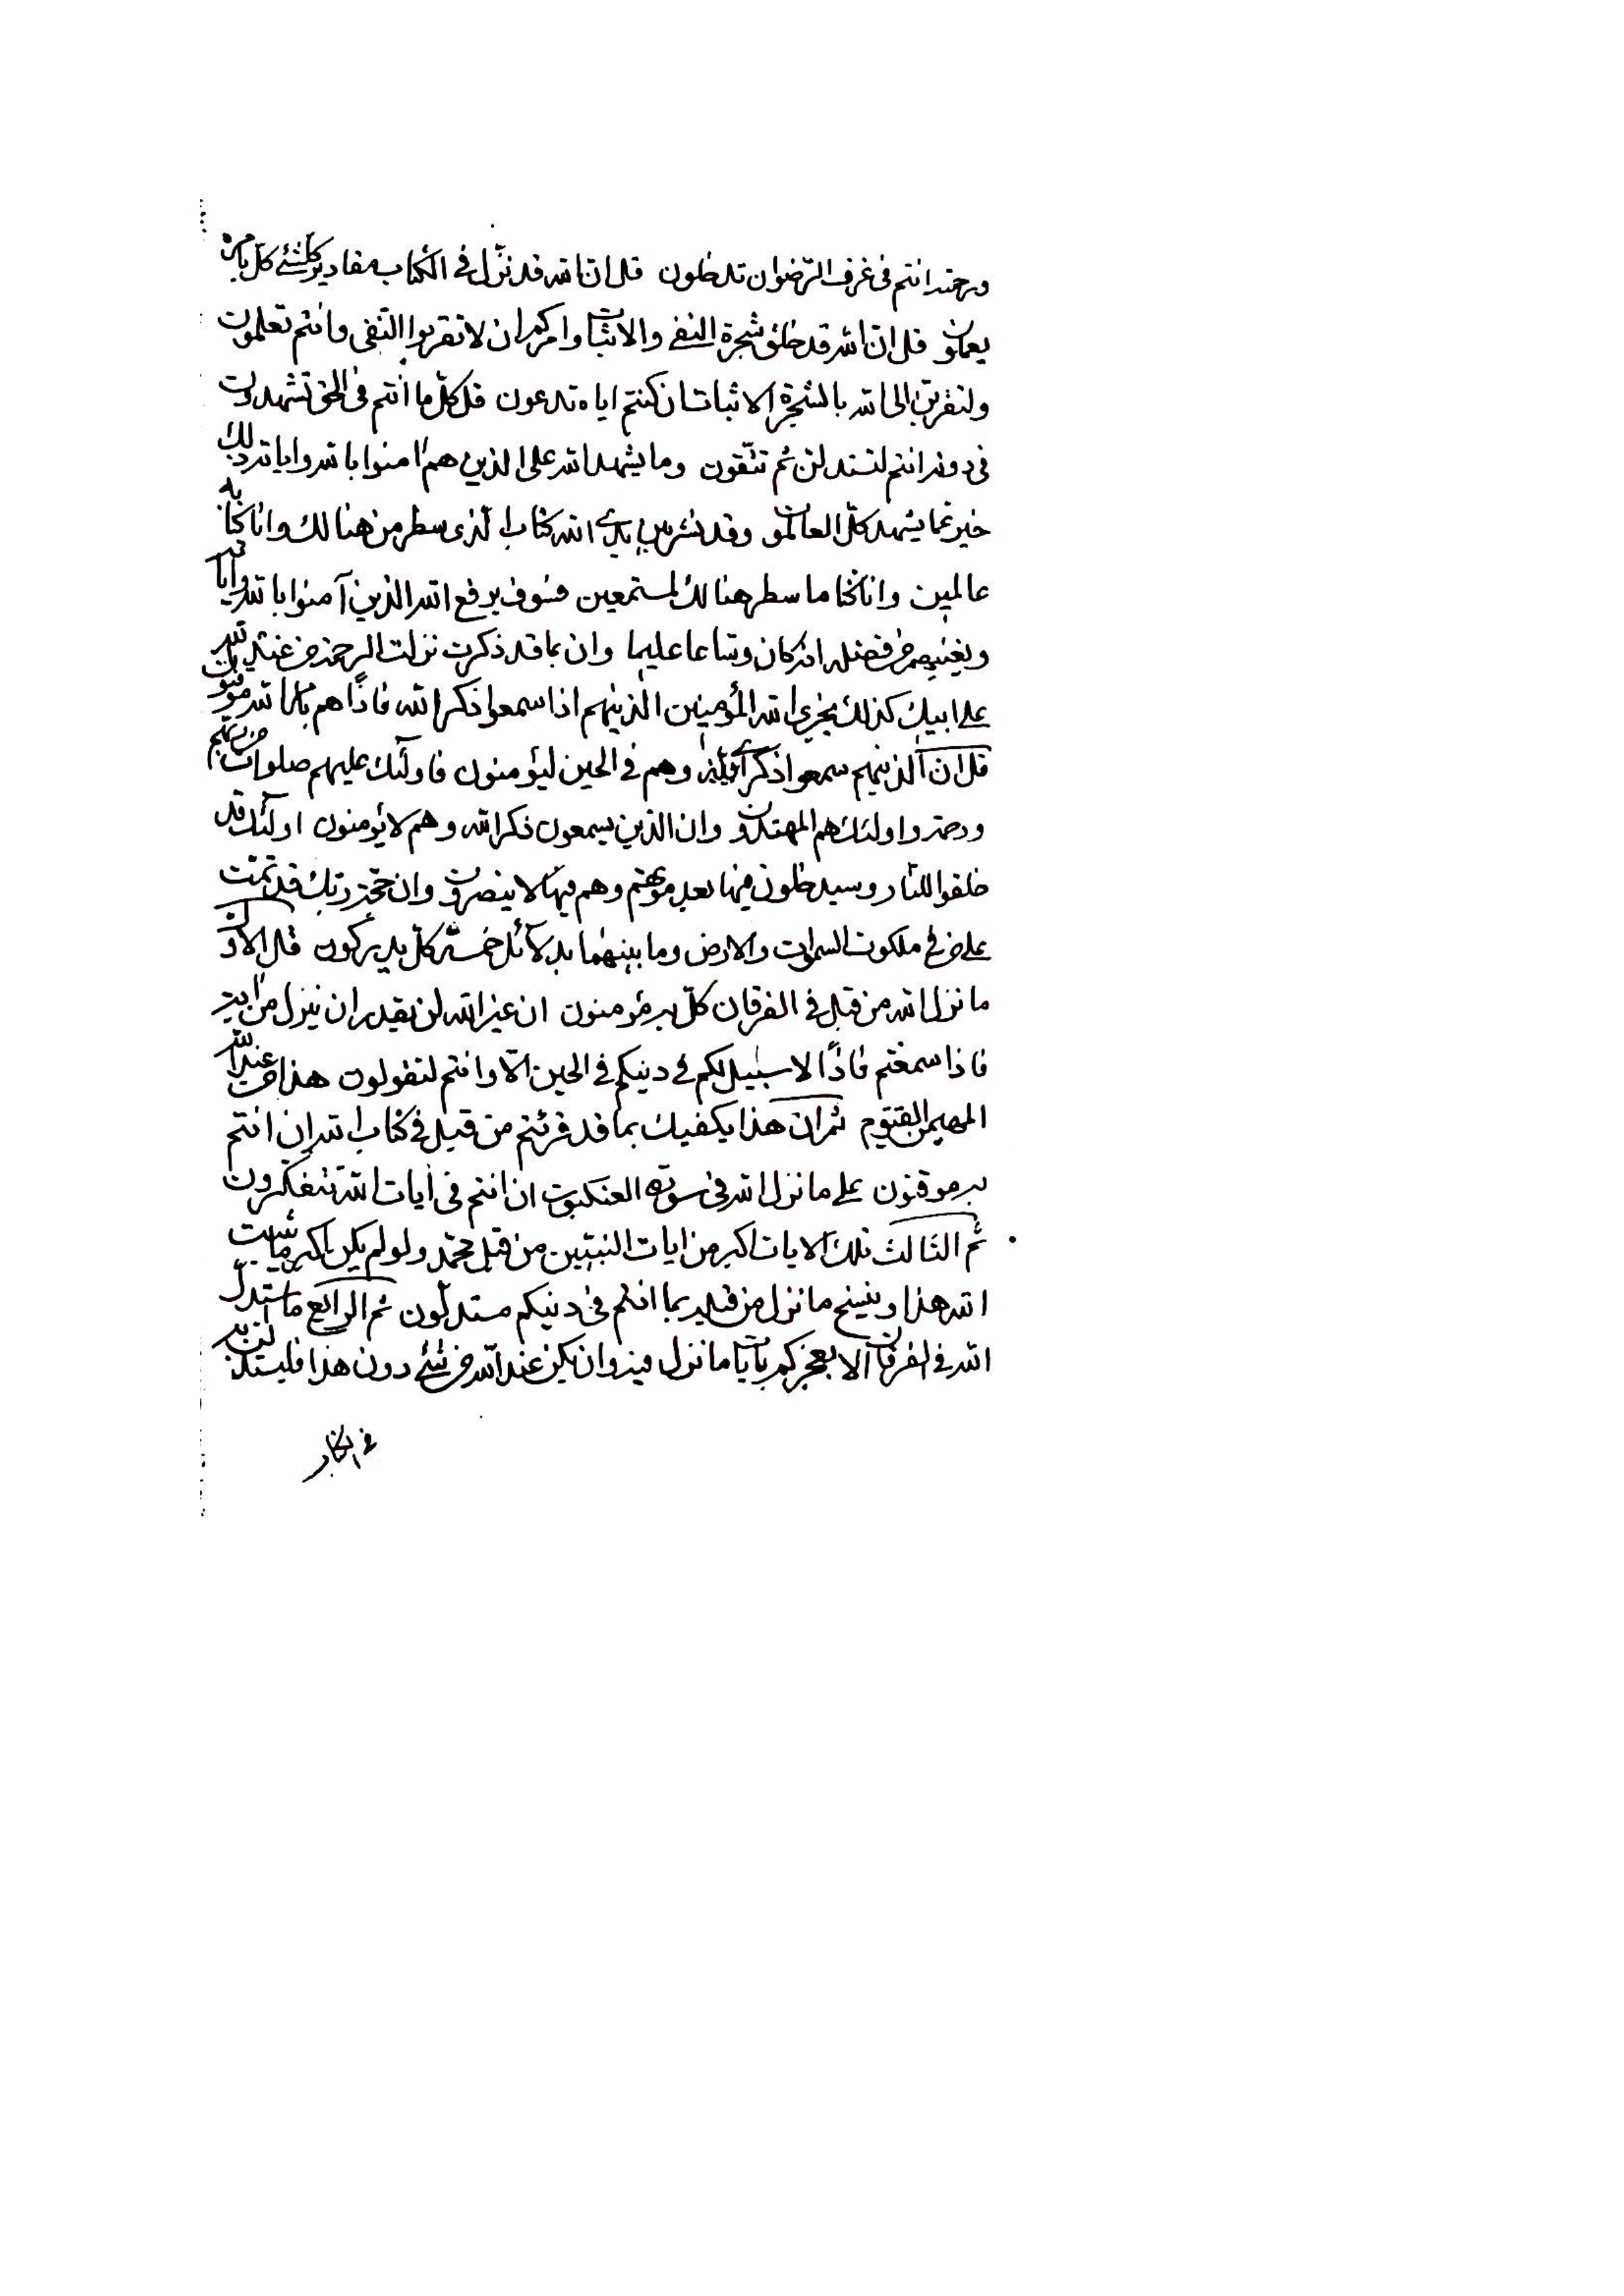 ورحمته انتم فى غرف الرّضوان تدخلون قل انّ الله قد نزّل فى الكتاب مقادير كلشئ كلّ بامره
يعملون قل انّ الله قد خلق شجرة النفى والاثبات وامركم ان لا تقربوا النّفى وانتم تعلمون
ولتقربنّ الى الله بالشجرة الاثبات ان كنتم اياه تدعون قل كلّ ما انتم فى الحق تشهدون
فى دونه انتم لتستدلن ثم تتّقون وما يشهد الله على الذين هم امنوا بالله واياته ذلك
خير عما يشهد كلّ العالمون وقد نشر بين يدى الله كتاب الّذى سطر من هنالك وانا كنا به
عالمين وانا كنا ما سطر هنالك لمستمعين فسوف يرفع الله الذين آمنوا بالله واياته
ويغنيهم من فضله انه كان وساعا عليما وان بما قد ذكرت نزلت الرحمة من عند الله
على ابيك كذلك يجزى الله المؤمنين الذينهم اذا سمعوا ذكر الله فاذا هم بالله موقنون
قل ان الذينهم سمعوا ذكر الله وهم فى الحين ليؤمنون فاولئك عليهم صلوات من ربهم
ورحمة واولئك هم المهتدون وان الذين يسمعون ذكر الله وهم لا يؤمنون اولئك قد
خلقوا للنار وسيدخلون فيها بعد موتهم وهم فيها لا ينصرون وان حجّة ربك قد تمّت
على من فى ملكوت السموات والارض وما بينهما بدلائل خمسة كلّ به يدركون قل الاول
ما نزل الله من قبل فى الفرقان كلّ به مؤمنون ان غير الله لن يقدر ان ينزل من اية
فاذا سمعتم فاذا لا سبيل لكم فى دينكم فى الحين الّا وانتم لتقولون هذا من عند الله
المهيمن القيّوم ثم ان هذا يكفيك بما قد قرئتم من قبل فى كتاب الله ان انتم
به موقنون على ما نزل الله فى سورة العنكبوت ان انتم فى ايات الله تتفكّرون
ثم الثالث تلك الايات اكبر من ايات النبيّين من قبل محمّد ولو لم يكن اكبر ما يثبت
الله هذا وينسخ ما نزل من قبله بما انتم فى دينكم مستدلّون ثم الرابع ما استدلّ
الله فى الفرقان الا بعجزكم بايات ما نزل فيه وان يكن عند الله من شئ دون هذا فليستدلن به
فى الكتاب